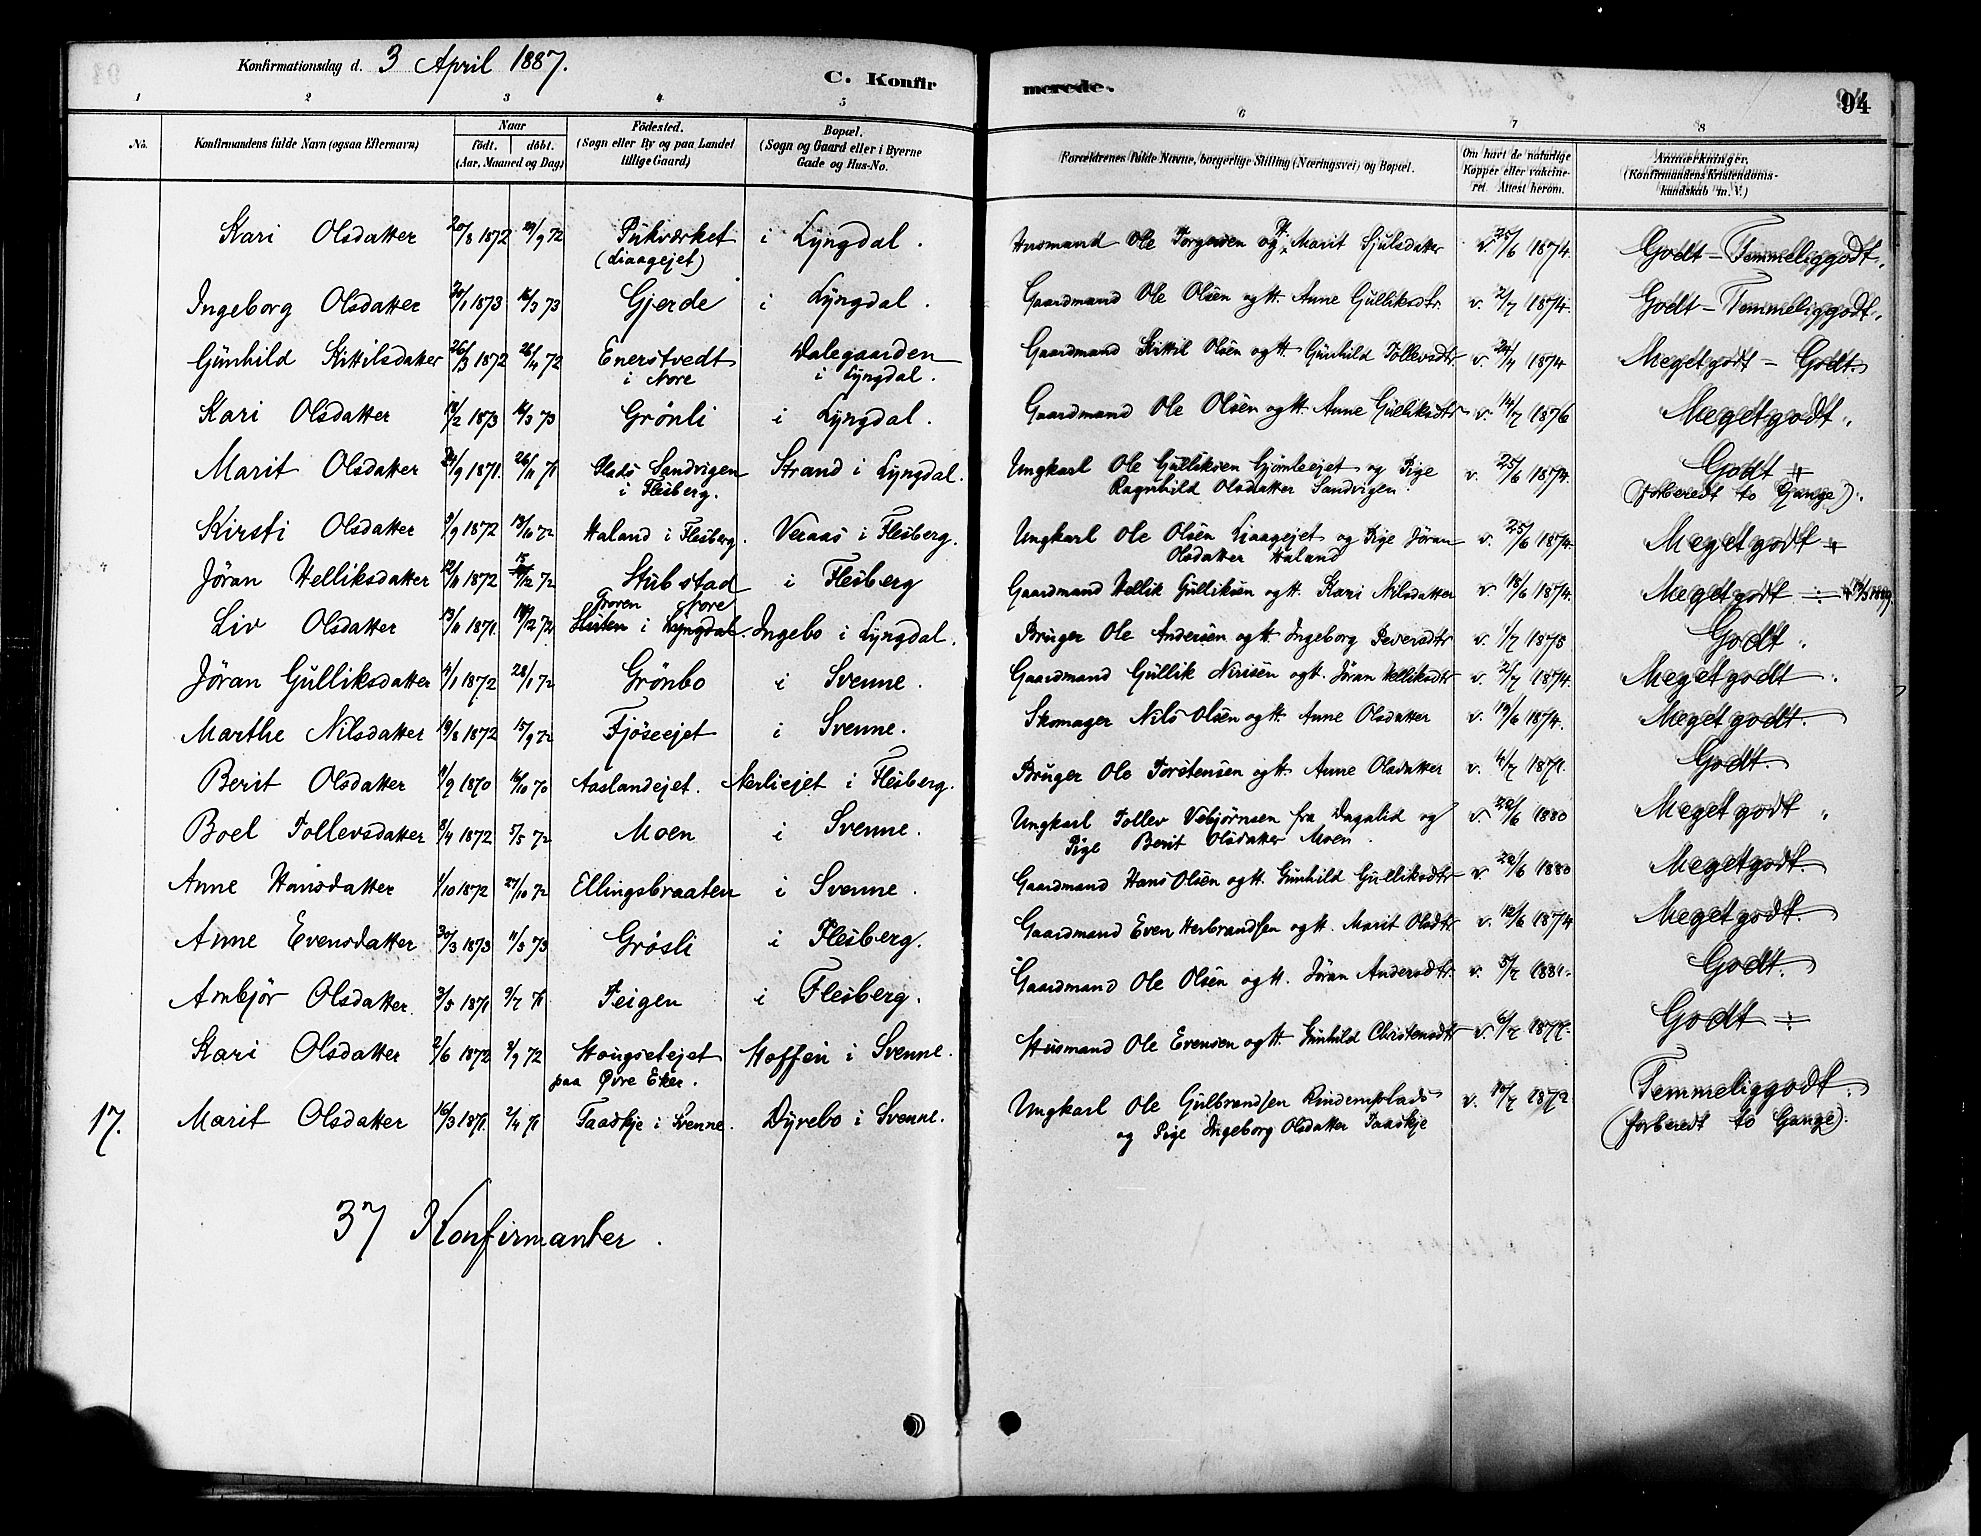 Konfirmationsdag d. 3 April 1887.
C. Konfirmerede.
94
1 2 3 4 5 6 7 8
No.
Konfirmandens fulde Navn (ogsaa Efternavn)
Naar
födt. döbt.
(Aar, Maaned og Dag)
Födested.
(Sogn eller By og paa Landet
tillige Gaard)
Bopæl.
(Sogn og Gaard eller i Byerne
Gade og Hus-No.
Forældrenes fulde Navne, borgerlige Stilling (Næringsvei) og Bopæl.
Om havt de naturlige
Kopper eller vakcine-
ret. Attest herom.
Anmærkninger.
(Konfirmandens Kristendoms-
kundskab m. V.)
Kari Olsdatter 20/8 1872 29/9 72 Pukværket i Lyngdal. Husmand Ole Torgersen og P. Marit Sjulsdatter v. 25/6 1874. Godt - Temmeliggodt.
(Liaagejet)
Ingeborg Olsdatter 20/1 1873 16/3 73 Gjerde i Lyngdal. Gaardmand Ole Olsen og H. Anne Gulliksdtr. v. 2/7 1874. Godt - Temmeliggodt.
Gunhild Kittilsdatter 26/3 1872 26/4 72 Enerstvedt Dalegaarden Gaardmand Kittil Olsen og H. Gunhild Tollevsdtr v. 24/4 1874 Meget godt - Godt.
i Nore i Lyngdal.
Kari Olsdatter 12/2 1873 16/3 73 Grönli i Lyngdal. Gaardmand Ole Olsen og H. Anne Gulliksdtr v. 14/7 1876 Meget godt.
Marit Olsdatter 24/9 1871. 26/11 71 Plads Sandvigen Strand i Lyngdal. Ungkarl Ole Gulliksen Gjömleejet og Pige v. 25/6 1874. Godt
i Flesberg. Ragnhild Olsdatter Sandvigen. (forberedt to Gange).
Kirsti Olsdatter 3/9 1872 13/10 72 Haland i Flesberg. Veraas i Flesberg. Ungkarl Ole Olsen Liaagejet og Pige Jöran v. 25/6 1874. Meget godt
Olsdatter Haland
Jöran Helliksdatter 12/11 1872 15/12 72 Stubstad i Flesberg Gaardmand Hellik Gulliksen og H. Kari Nilsdatter v 18/6 1874. Meget godt
Groren Nore
Liv Olsdatter 13/11 1871. 12/12 72 i Lyngdal. Ingebo i Lyngdal. Bruger Ole Andersen og H. Ingeborg Pedersdtr v. 1/7 1875 Godt.
Jöran Gulliksdatter 4/1 1872 28/1 72 Grönbo i Svenne. Gaardmand Gullik Nirisen og H. Jöran Helliksdtr v. 2/7 1874. Meget godt.
Marthe Nilsdatter 19/8 1872 15/9 72 Fjöseejet i Svenne. Skomager Nils Olsen og H. Anne Olsdatter v. 19/6 1874. Meget godt.
Berit Olsdatter 11/9 1870 16/10 70 Aaslandejet. Nerliejet i Flesberg. Bruger Ole Torstensen og H. Anne Olsdatter v. 4/7 1871. Godt.
Boel Tollevsdatter 3/4 1872 5/5 72 Moen i Svenne. Ungkarl Tollev Vebjörnsen fra Dagalid og v. 22/6 1880 Meget godt
Pige Berit Olsdatter Moen.
Anne Hansdatter 1/10 1872 27/10 72 Ellingsbraaten i Svenne. Gaardmand Hans Olsen og H. Gunhild Gulliksdtr v 22/6 1880 Meget godt.
Anne Evensdatter 30/3 1873 11/5 73 Grösli i Flesberg. Gaardmand Even Herbrandsen og H. Marit Olsdtr v. 12/6 1874 Meget godt.
Ambjör Olsdatter 3/5 1871 9/7 71 Teigen i Flesberg. Gaardmand Ole Olsen og H. Jöran Andersdtr v. 5/7 1881. Godt.
Kari Olsdatter 2/6 1872 1/9 72 Hougsetejet Hoffen i Svenne. Husmand Ole Evensen og H. Gunhild Christensdtr v. 6/7 1877. Godt
paa Övre Eker.
17. Marit Olsdatter 16/3 1871. 2/4 71 Taaskje i Svenne. Dyrebo i Svenne. Ungkarl Ole Gulbrandsen Rindemplads v. 10/7 1872 Temmeliggodt.
og Pige Ingeborg Olsdatter Taaskje (forberedt to Gange).
37 Konfirmanter.